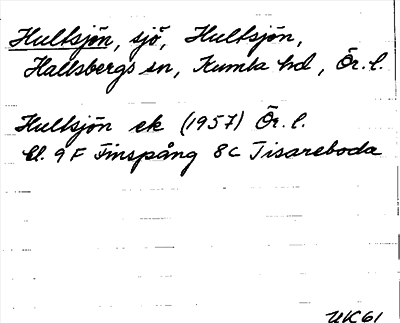 Hultsjön, sjö, Hultsjön,
Hallsbergs sn, Kumla hd, Ör. l.
Hultsjön ek (1957) Ör. l.
bl. 9 F Finspång 8c Tisareboda
UK61